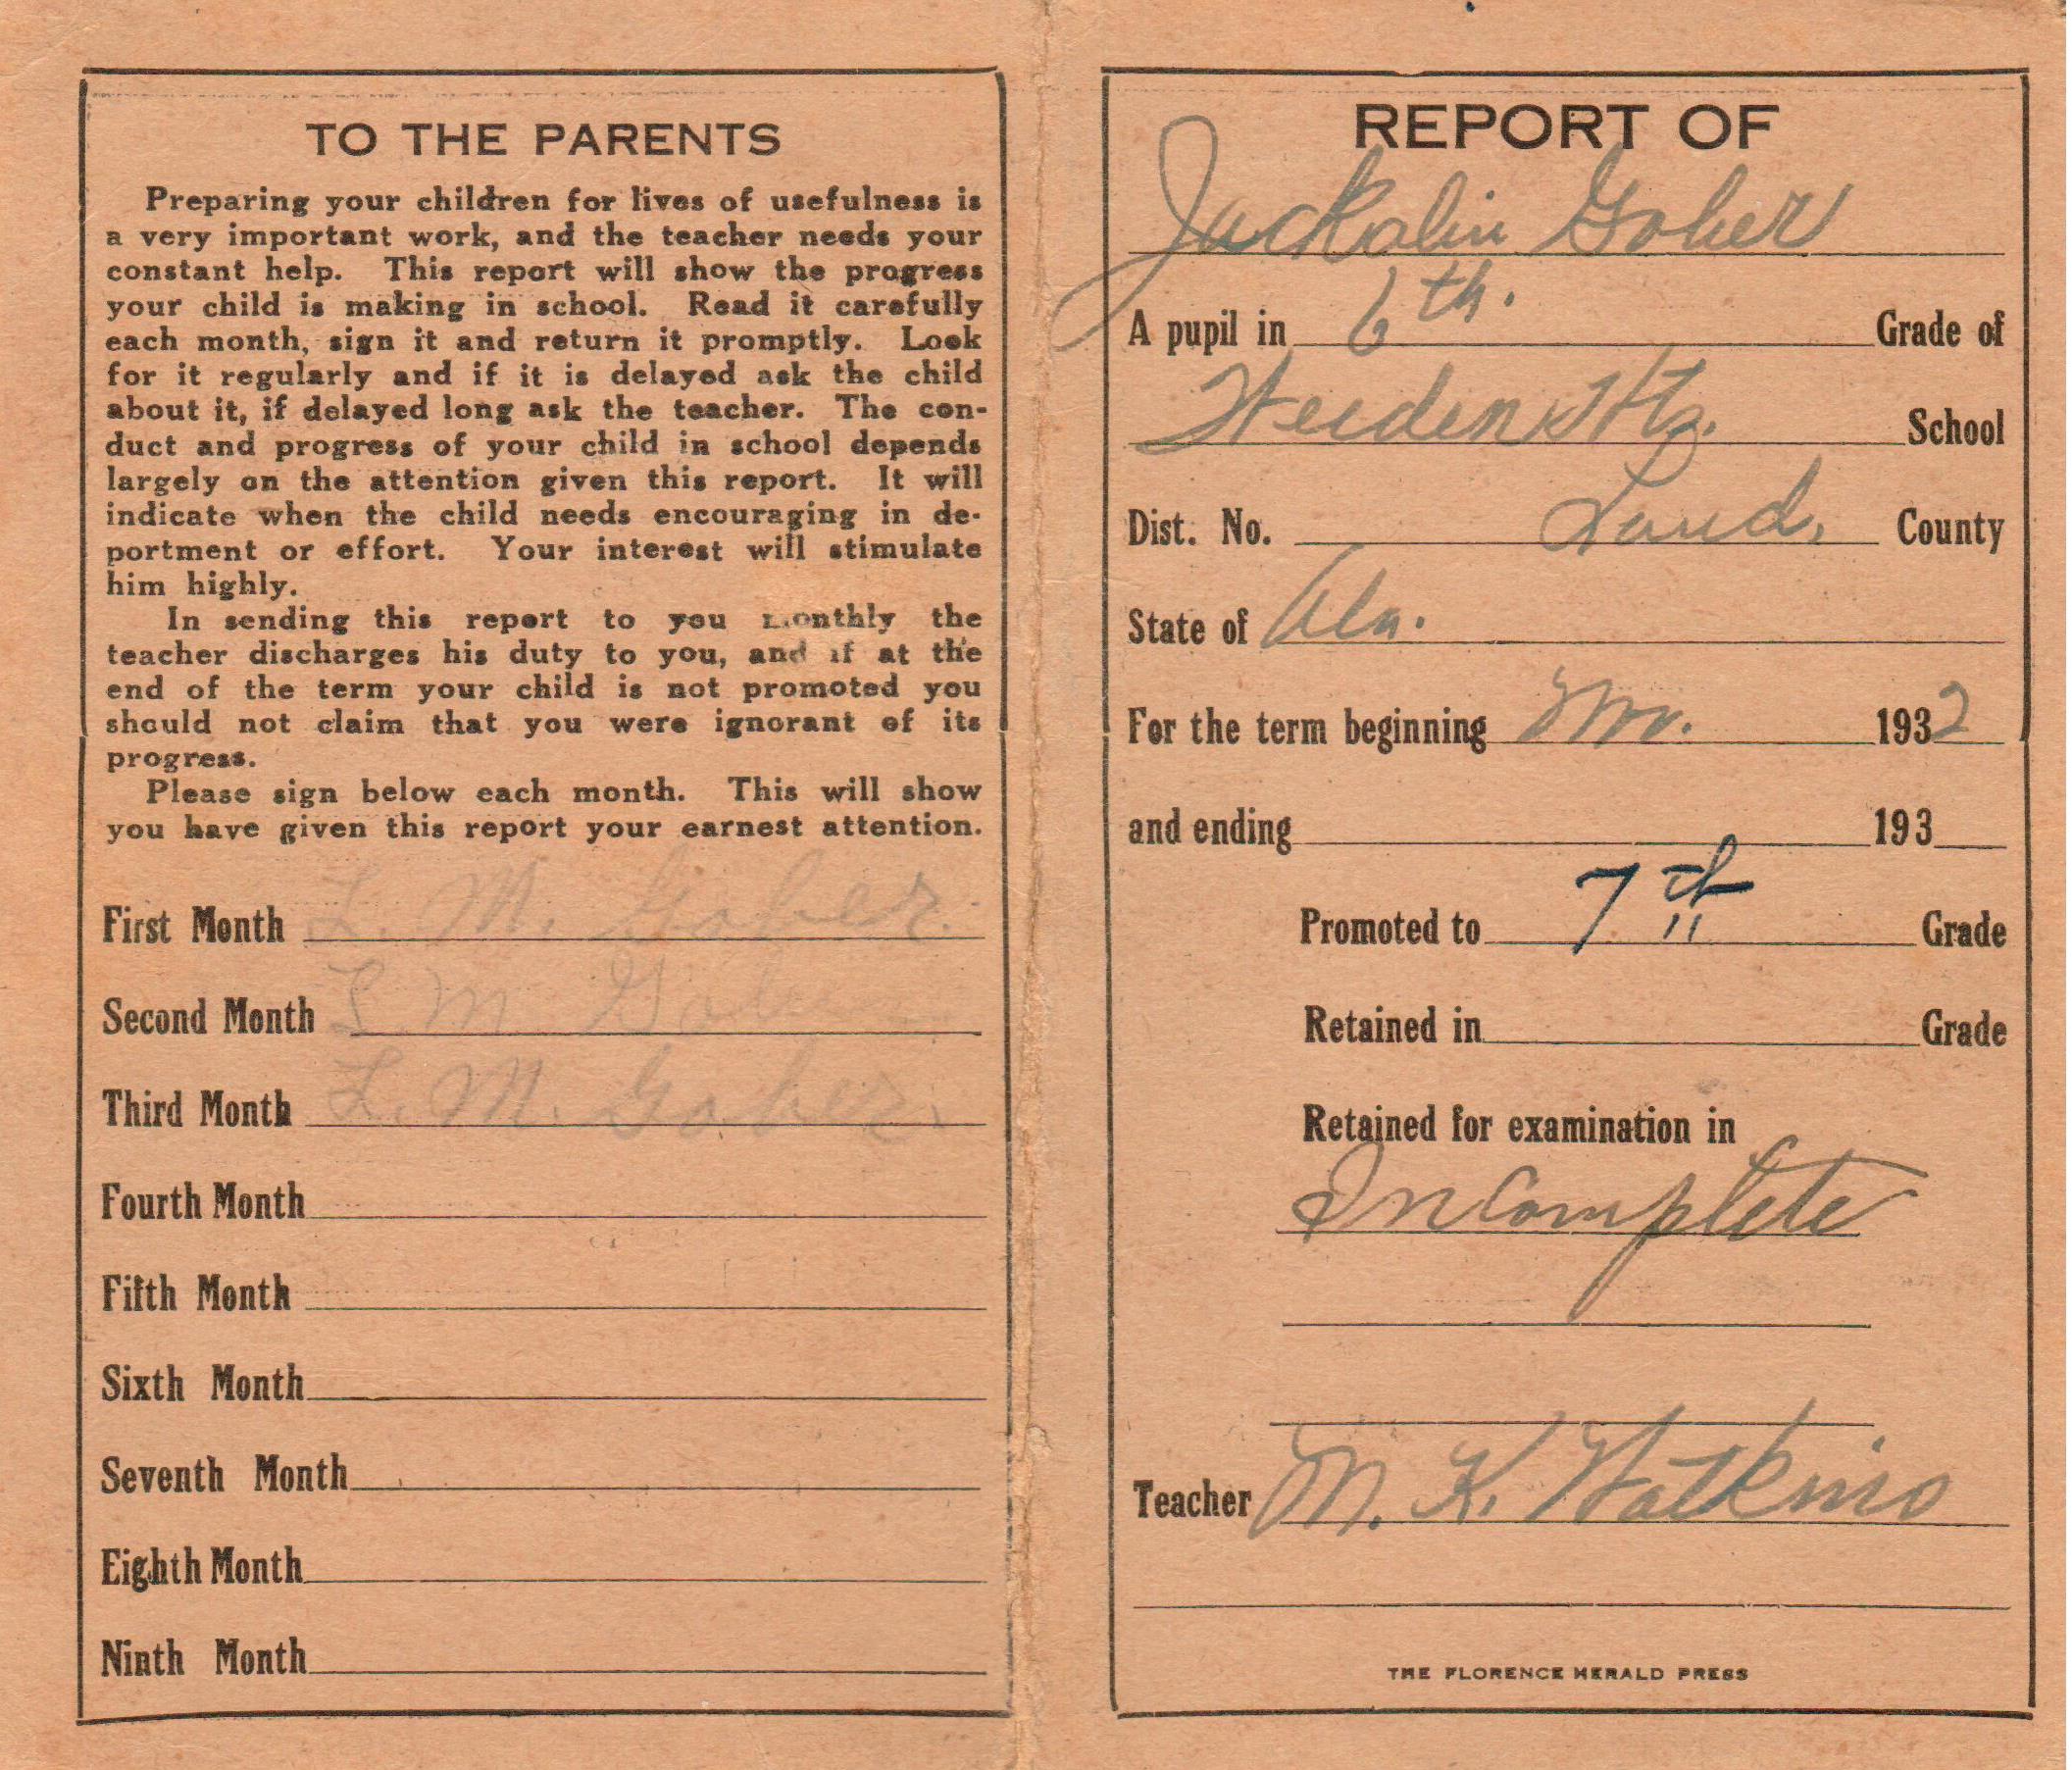 TO THE PARENTS
Preparing your children for lives of usefulness is
a very important work, and the teacher needs your
constant help. This report will show the progress
your child is making in school. Read it carefully
each month, sign it and return it promptly. Look
for it regularly and if it is delayed ask the child
about it, if delayed long ask the teacher. The con-
duct and progress of your child in school depends
largely on the attention given this report. It will
indicate when the child needs encouraging in de-
portment or effort. Your interest will stimulate
him highly.
In sending this report to you monthly the
teacher discharges his duty to you, and if at the
end of the term your child is not promoted you
should not claim that you were ignorant of its
progress.
Please sign below each month. This will show
you have given this report your earnest attention.
First Month L. M. Gober.
Second Month L. M. Gober
Third Month L. M. Gober.
Fourth Month
Fifth Month
Sixth Month
Seventh Month
Eighth Month
Ninth Month
REPORT OF
Jackalin Gober
A pupil in 6th. Grade of
School
Dist. No. Laud. County
State of Ala.
For the term beginning Nov. 1932
and ending 193
Promoted to 7th Grade
Retained in Grade
Retained for examination in
Incomplete
Teacher M. K. Watkins
THE FLORENCE HERALD PRESS